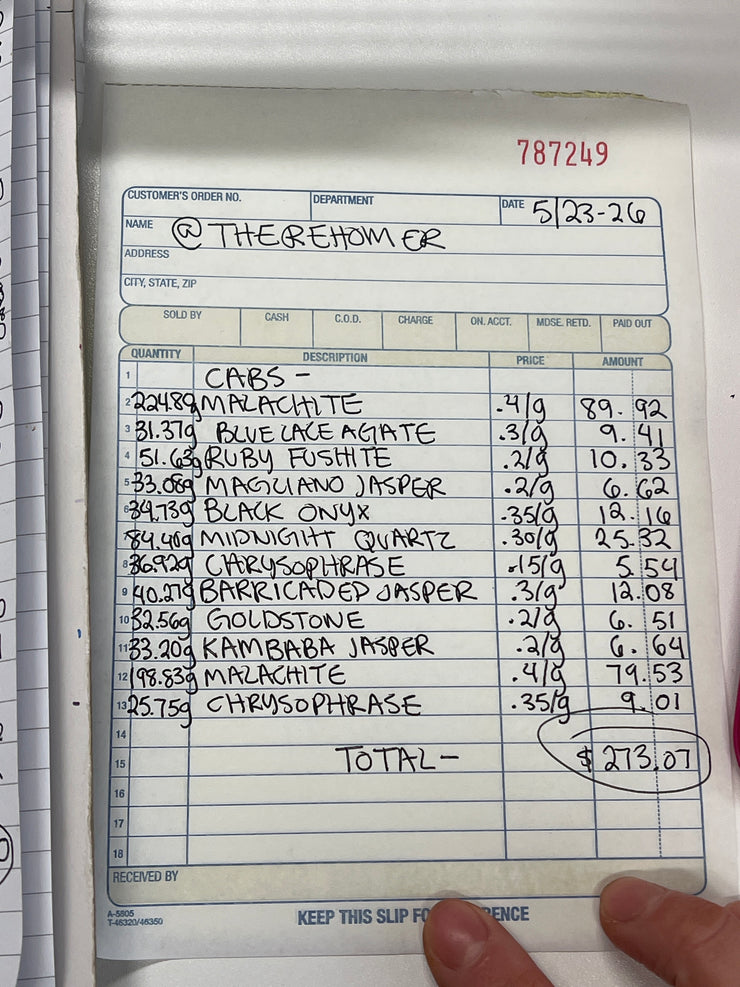 787249
CUSTOMER'S ORDER NO. DEPARTMENT DATE 5/23-26
NAME @THEREHOMER
ADDRESS
CITY, STATE, ZIP
SOLD BY CASH C.O.D. CHARGE ON. ACCT. MDSE. RETD. PAID OUT
QUANTITY DESCRIPTION PRICE AMOUNT
1 CABS -
2 224.89g MALACHITE .4/g 89.92
3 31.37g BLUE LACE AGATE .3/g 9.41
4 51.63g RUBY FUSHITE .2/g 10.33
5 33.08g MAGLIANO JASPER .2/g 6.62
6 34.73g BLACK ONYX .35/g 12.16
84.40g MIDNIGHT QUARTZ .30/g 25.32
8 36.92g CHRYSOPHRASE .15/g 5.54
9 40.27g BARRICADED JASPER .3/g 12.08
10 32.56g GOLDSTONE .2/g 6.51
11 33.20g KAMBABA JASPER .2/g 6.64
12 198.83g MALACHITE .4/g 79.53
13 25.75g CHRYSOPHRASE .35/g 9.01
14
15 TOTAL - $273.07
16
17
18
RECEIVED BY
A-5805
T-46320/46350
KEEP THIS SLIP FO ENCE